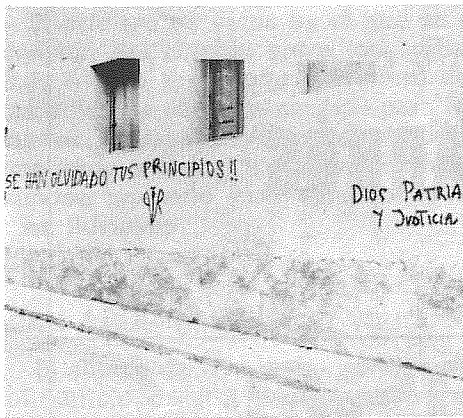 SE HAN OLVIDADO TUS PRINCIPIOS!!
DIOS PATRIA
Y JUSTICIA